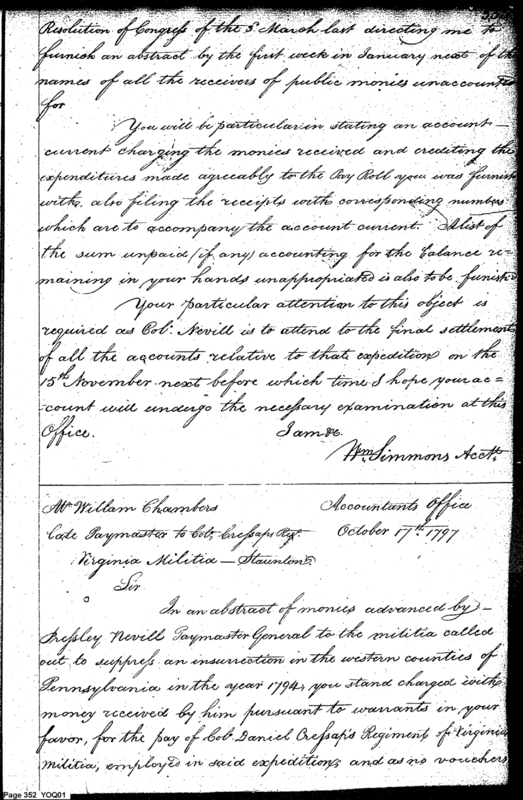 Resolution of Congress of the 3d March last directing me to
furnish an abstract by the first week in January next of the
names of all the receivers of public monies unaccounted
for
You will be particular in stating an account
current charging the monies received and crediting the
expenditures made agreeably to the Pay Roll you was furnish
with, also filing the receipts with corresponding numbers
which are to accompany the account current. A list of
the sum unpaid (if any) accounting for the balance re-
maining in your hands unappropriated is also to be furnished
Your particular attention to this object is
required as Colo. Nevill is to attend to the final settlement
of all the accounts relative to that expedition on the
15th November next before which time I hope your ac=
=count will undergo the necessary examination at this
Office. I am &c.
Wm Simmons Acctt.
Mr Willam Chambers Accountants Office
Late Paymaster to Colo. Cressaps Regt. October 17th 1797
Virginia Militia — Staunton
Sir
In an abstract of monies advanced by
Pressley Nevill Paymaster General to the militia called
out to suppress an insurrection in the western counties of
Pennsylvania in the year 1794, you stand charged with
money received by him pursuant to warrants in your
favor, for the pay of Colo. Daniel Cressap's Regiment, of Virginia
Militia, employed in said expedition, and as no vouchers
Page 352 YOQ01